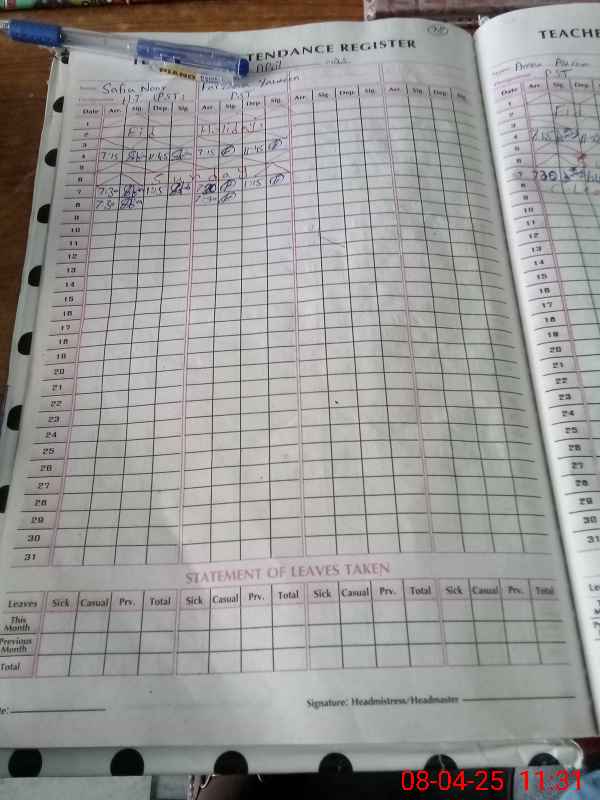 TENDANCE REGISTER
April
PIANO
Name: Safia Noor Yasmeen
H.T (PST)
Date Arr. Sig. Dep. Sig. Arr. Sig. Dep. Sig. Arr. Sig. Dep. Sig. Arr. Sig. Dep. Sig.
1
2 Eid Holidays
3
4 7:15 11:45 7:15 11:45
5
6 Sunday
7 7:30 1:15 1:15
8 7:30 7:30
9
10
11
12
13
14
15
16
17
18
19
20
21
22
23
24
25
26
27
28
29
30
31
STATEMENT OF LEAVES TAKEN
Leaves Sick Casual Prv. Total Sick Casual Prv. Total Sick Casual Prv. Total Sick Casual Prv. Total
This Month
Previous Month
Total
Signature: Headmistress/Headmaster
TEACHE
PST
Date
1
2 Eid
3
4
5
6
7 7:30
8
9
10
11
12
13
14
15
16
17
18
19
20
21
22
23
24
25
26
27
28
29
30
31
08-04-25 11:31